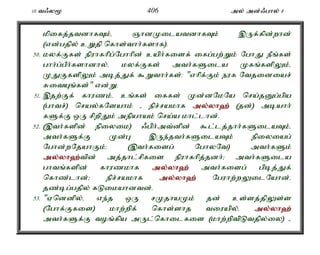 ஜுஸ்வு 406 அல் அன்ஃபால் 8
மிகைத்தவனாகவும், ஞானமுடையவனாகவும் இருக்கின்றான்
(என்பதில் உறுதி கொள்வார்களாக).
50. மலக்குகள் நிராகரிப்போரின் உயிர்களைக் கைப்பற்றும் போது நீங்கள்
பார்ப்பீர்களானால், மலக்குகள் அவர்களுடைய முகங்களிலும்,
முதுகுகளிலும் அடித்துக் கூறுவார்கள்: "எரிக்கும் நரக வேதனையைச்
சுவையுங்கள்" என்று.
51. இதற்குக் காரணம், உங்கள் கைகள் முன்னமேயே செய்தனுப்பிய
(பாவச்) செயல்களேயாம் - நிச்சயமாக அல்லாஹ் (தன்) அடியார்
களுக்கு ஒரு சிறிதும் அநியாயம் செய்ய மாட்டான்.
52. (இவர்களின் நிலைமை) ஃபிர்அவ்னின் கூட்டத்தார்களுடையவும்,
அவர்களுக்கு முன்பு இருந்தவர்களுடையவும் நிலையைப்
போன்றதேயாகும்; (இவர்களைப் போலவே) அவர்களும்
அல்லாஹ்வின் அத்தாட்சிகளை நிராகரித்தனர்; அவர்களுடைய
பாவங்களின் காரணமாக அல்லாஹ் அவர்களைப் பிடித்துக்
கொண்டான்; நிச்சயமாக அல்லாஹ் பேராற்றலுடையோன்,
தண்டிப்பதில் கடுமையானவன்.
53. "ஏனெனில், எந்த ஒரு சமுதாயமும் தன் உள்ளத்திலுள்ள
(போக்குகளை) மாற்றிக் கொள்ளாத வரையில், அல்லாஹ்
அவர்களுக்கு வழங்கிய அருட்கொடைகளை (மாற்றிவிடுவதில்லை) -